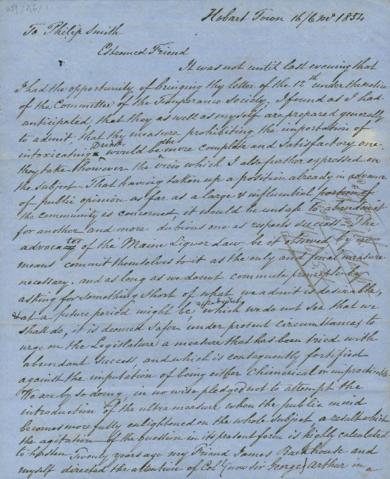 Hobart Town 16/6 mo 1854
To Philip Smith
Esteemed Friend
It was not until last evening that
I had the opportunity of bringing thy letter of the 12th under the notice
of the Committee of the Temperance Society, I found as I had
anticipated that they as well as myself are prepared generally
to admit that thy measure prohibiting the importation of
intoxicating Drink would be the more complete and Satisfactory one
they take however the view which I also further expressed on
the subject - That having taken up a position already in advance
of public opinion as far as a large & influential portion of
the community is concerned, it would be unsafe to abandon it
for another and more dubious one as respects success - The
advocates of the Maine Liquor Law, be it observed by no
means commit themselves to it as the only and final measure
necessary, and as long as we do not compromise principle by
asking for something short of what we admit is desirable,
& at a future period might be which we do not see that we
shall do, it is deemed safer under present circumstances to
urge on the Legislature a measure that has been tried with
abundant success, and which is consequently fortified
against the imputation of being either Chimerical or impracticable
We are by so doing, in no wise pledged not to attempt the
introduction of the ultra measure when the public mind
becomes more fully enlightened on the whole subject a result which
the agitation of the question in its present form is highly calculated
to hasten. Twenty years ago my Friend James Backhouse and
myself directed the attention of Col. (now Sir George) Arthur in a